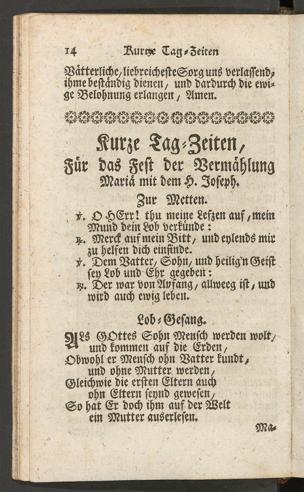 14 Kurtze Tag-Zeiten
Vätterliche/liebreicheste Sorg uns verlassend/
ihme beständig dienen, und dardurch die ewi-
ge Belohnung erlangen, Amen.
Kurze Tag-Zeiten,
Für das Fest der Vermählung
Mariä mit dem H. Joseph.
Zur Metten.
℣. O HErr! thu meine Lefzen auf, mein
Mund dein Lob verkünde:
℟. Merck auf mein Bitt, und eylends mir
zu helfen dich einfinde.
℣. Dem Vatter, Sohn, und heilig'n Geist
sey Lob und Ehr gegeben:
℟. Der war von Anfang, allweeg ist, und
wird auch ewig leben.
Lob-Gesang.
ALs GOttes Sohn Mensch werden wolt,
und kommen auf die Erden,
Obwohl er Mensch ohn Vatter kundt,
und ohne Mutter werden,
Gleichwie die ersten Eltern auch
ohn Eltern seynd gewesen,
So hat Er doch ihm auf der Welt
ein Mutter auserlesen.
Ma-